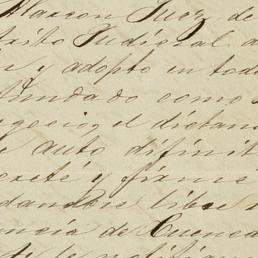 Alarcon Juez de
rito Judicial a
n y adopto en todo
fundado como
egocio, el dictam
auto difinit
ecreté y firmé
danarse libre
encia de Cuenca